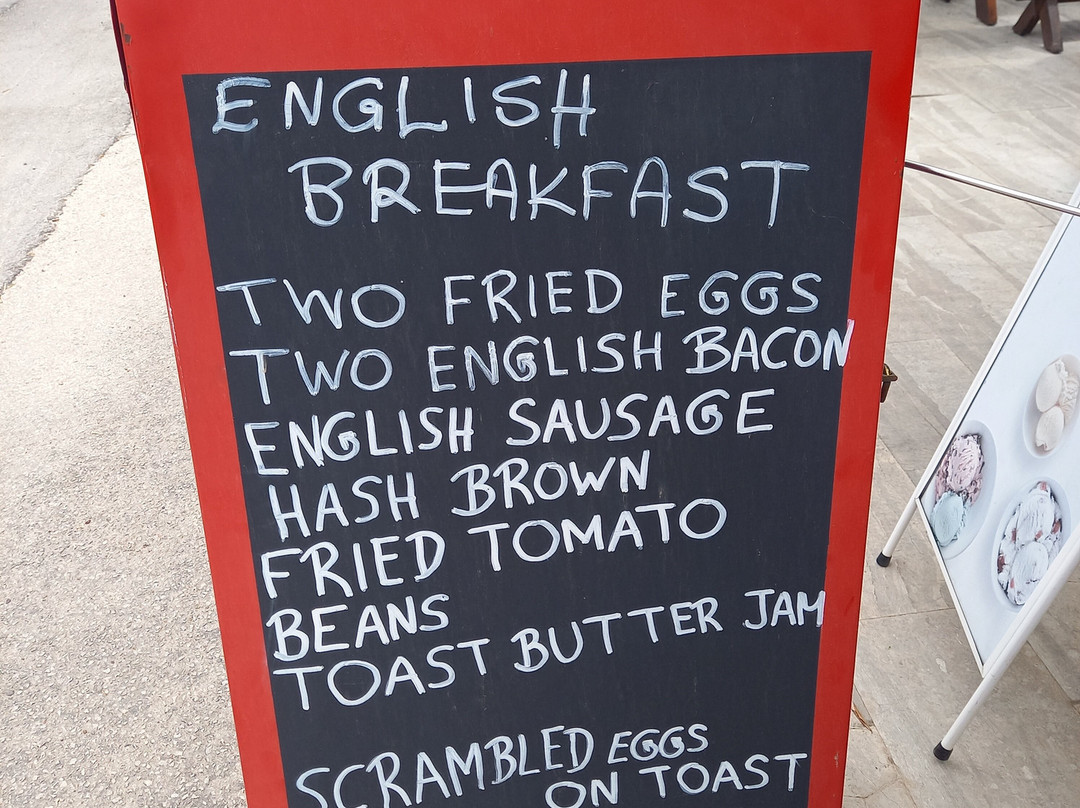 ENGLISH
BREAKFAST
TWO FRIED EGGS
TWO ENGLISH BACON
ENGLISH SAUSAGE
HASH BROWN
FRIED TOMATO
BEANS
TOAST BUTTER JAM
SCRAMBLED EGGS
ON TOAST